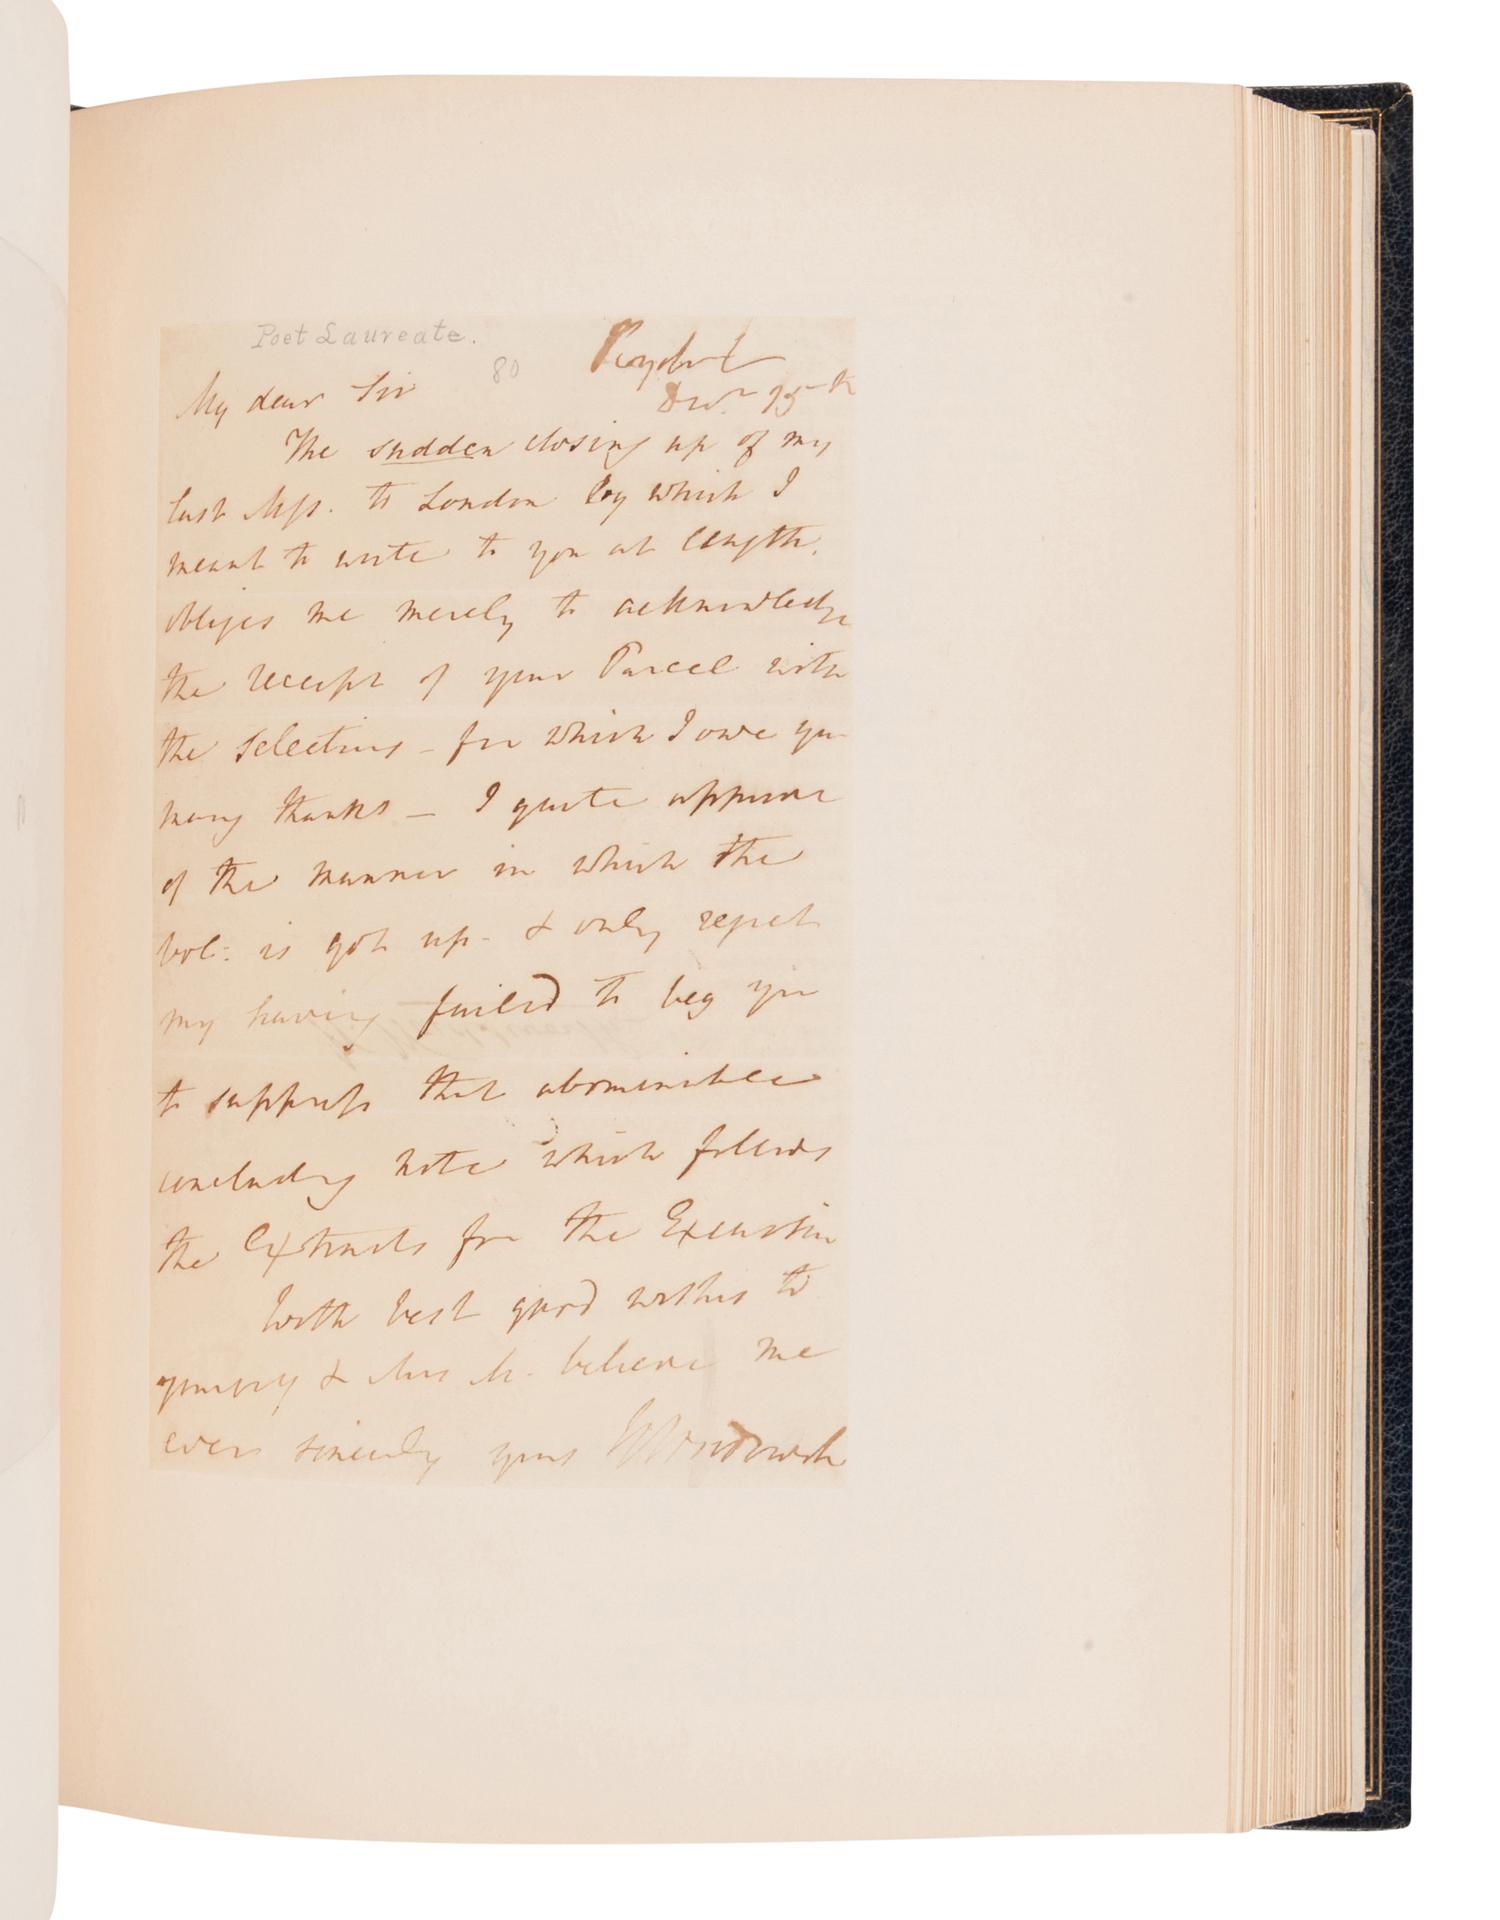 Poet Laureate.
80
My dear Sir
The sudden closing up of my
last Mss. to London by which I
meant to write to you at length,
obliges me merely to acknowledge
the receipt of your Parcel with
the Selections – for which I owe you
many thanks – I quite approve
of the manner in which the
vol: is got up – & only regret
my having failed to beg you
to suppress that abominable
concluding note which follows
the Extracts for the Excursion
With best good wishes to
yourself & Mrs M. believe me
ever sincerely yours W Wordsworth